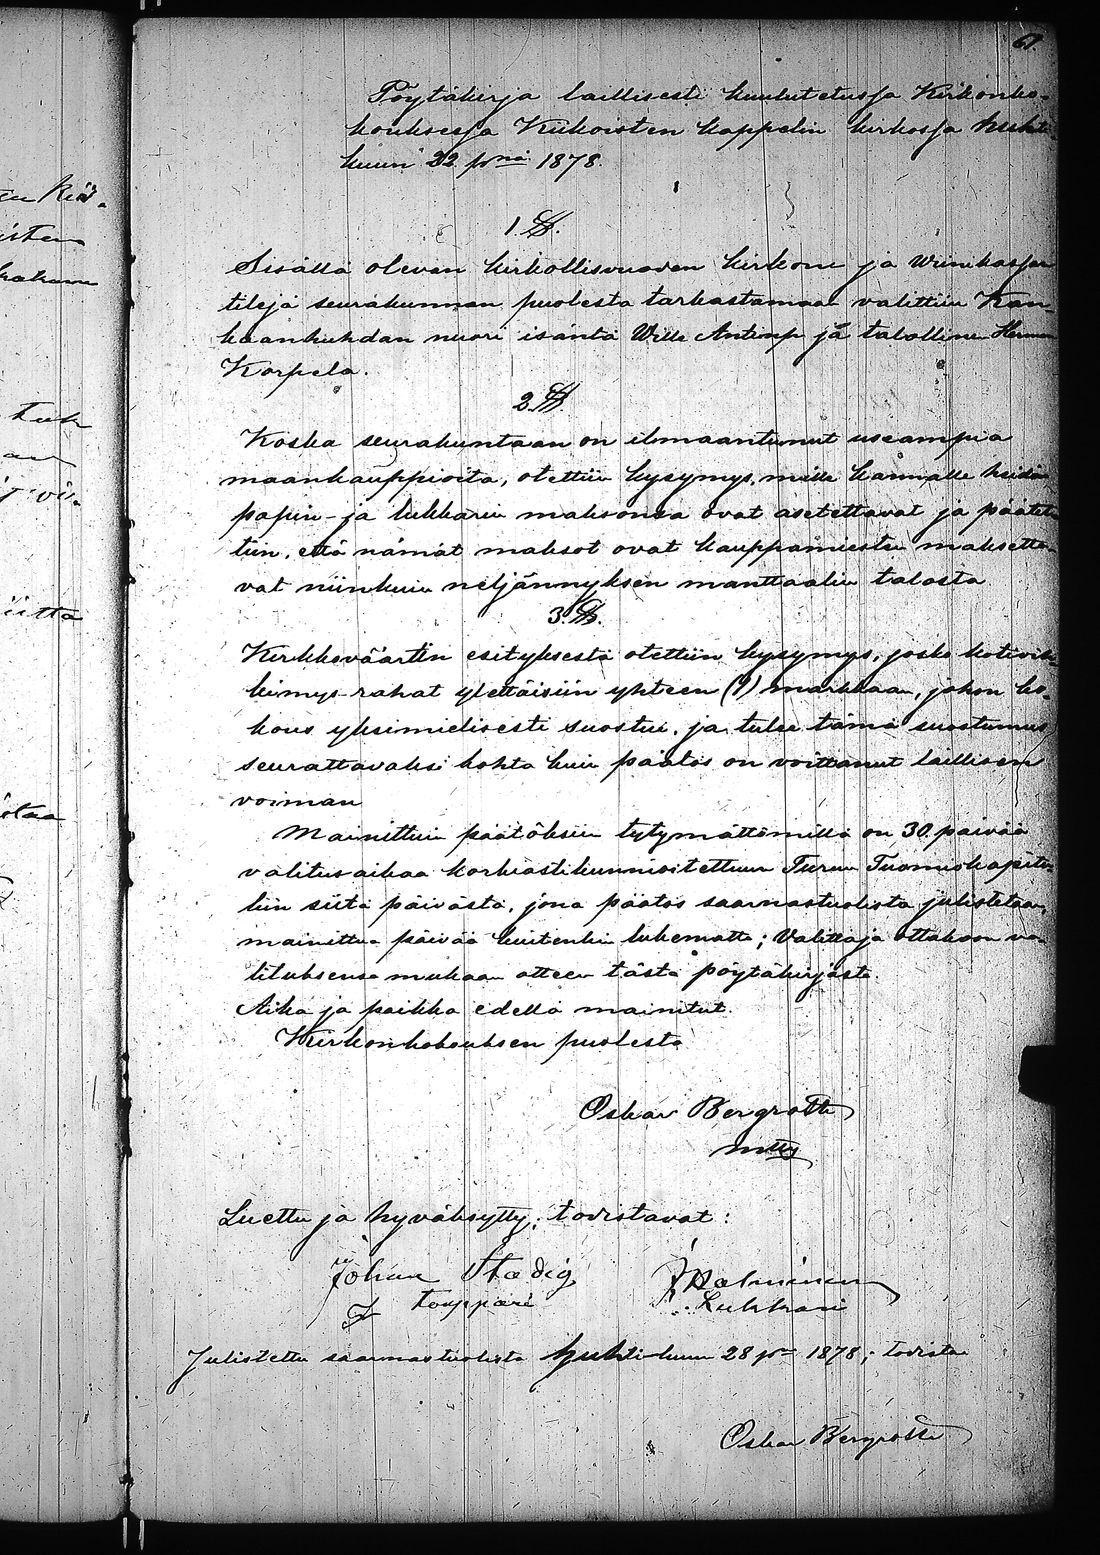 61.
Pöytäkirja laillisesti kuulutetussa Kirkonko-
kouksessa Kiikoisten kappelin kirkossa huhti-
kuun 22 pnä 1878.
1.§.
Sisällä olevan kirkollisvuoden kirkon ja
tilejä seurakunnan puolesta tarkastamaan valittiin Kan-
kaanhuhdan nuori isäntä Wille Antinp. ja talollinen Herman
Korpela.
2.§.
Koska seurakuntaan on ilmaantunut useampia
maankauppioita, otettiin kysymys, mille kannalle heidän
papin- ja lukkarin maksonsa ovat asetettavat ja päätet-
tiin, että nämät maksot ovat kauppamiesten maksetta-
vat niinkuin neljännyksen manttaalin talosta
3.§.
Kirkkoväärtin esityksestä otettiin kysymys, josko kotivih-
kimys-rahat ylettäisiin yhteen (1) markkaan, johon ko-
kous yksimielisesti suostui, ja tulee tämä suostumus
seurattavaksi kohta kuin päätös on voittanut laillisen
voiman
Mainittuin päätöksiin tytymättömillä on 30 päivää
valitusaikaa korkiastikunnioitettuun Turun Tuomiokapitu-
liin siitä päivästä, jona päätös saarnastuolista julistetaan,
mainittua päivää kuitenkin lukematta; Valittaja ottakoon va-
lituksensa mukaan otteen tästä pöytäkirjasta.
Aika ja paikka edellä mainitut.
Kiirkonkokouksen puolesta
Oskar Bergroth
Luettu ja hyväksytty; todistavat:
Johan Stadig
Touppari
Salminen
Lukkari
Julistettu saarnastuolista huhti-kuun 28 pnä 1878; todistaa
Oskar Bergroth